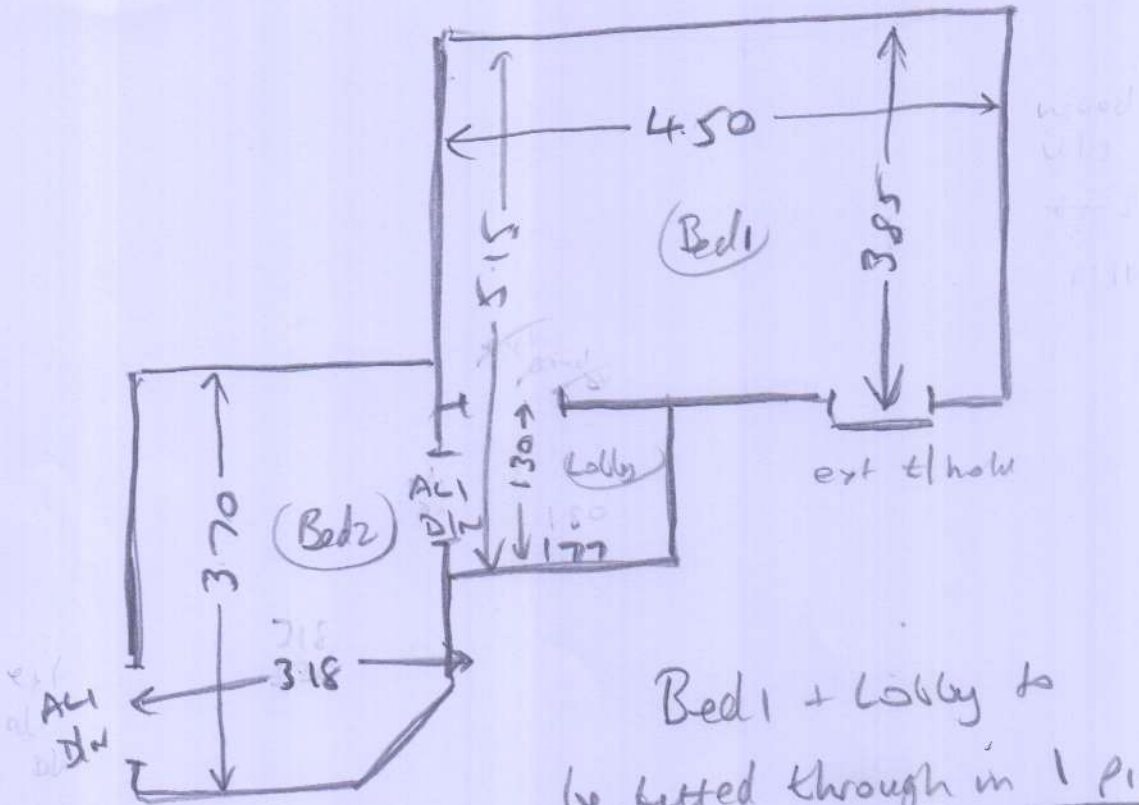 4.50
5.15
Bed1
3.85
130
Lobby
ext t/hold
AL1
D/N
177
3.70
Bed2
3.18
AL1
D/N
Bed1 + Lobby to
be fitted through in 1